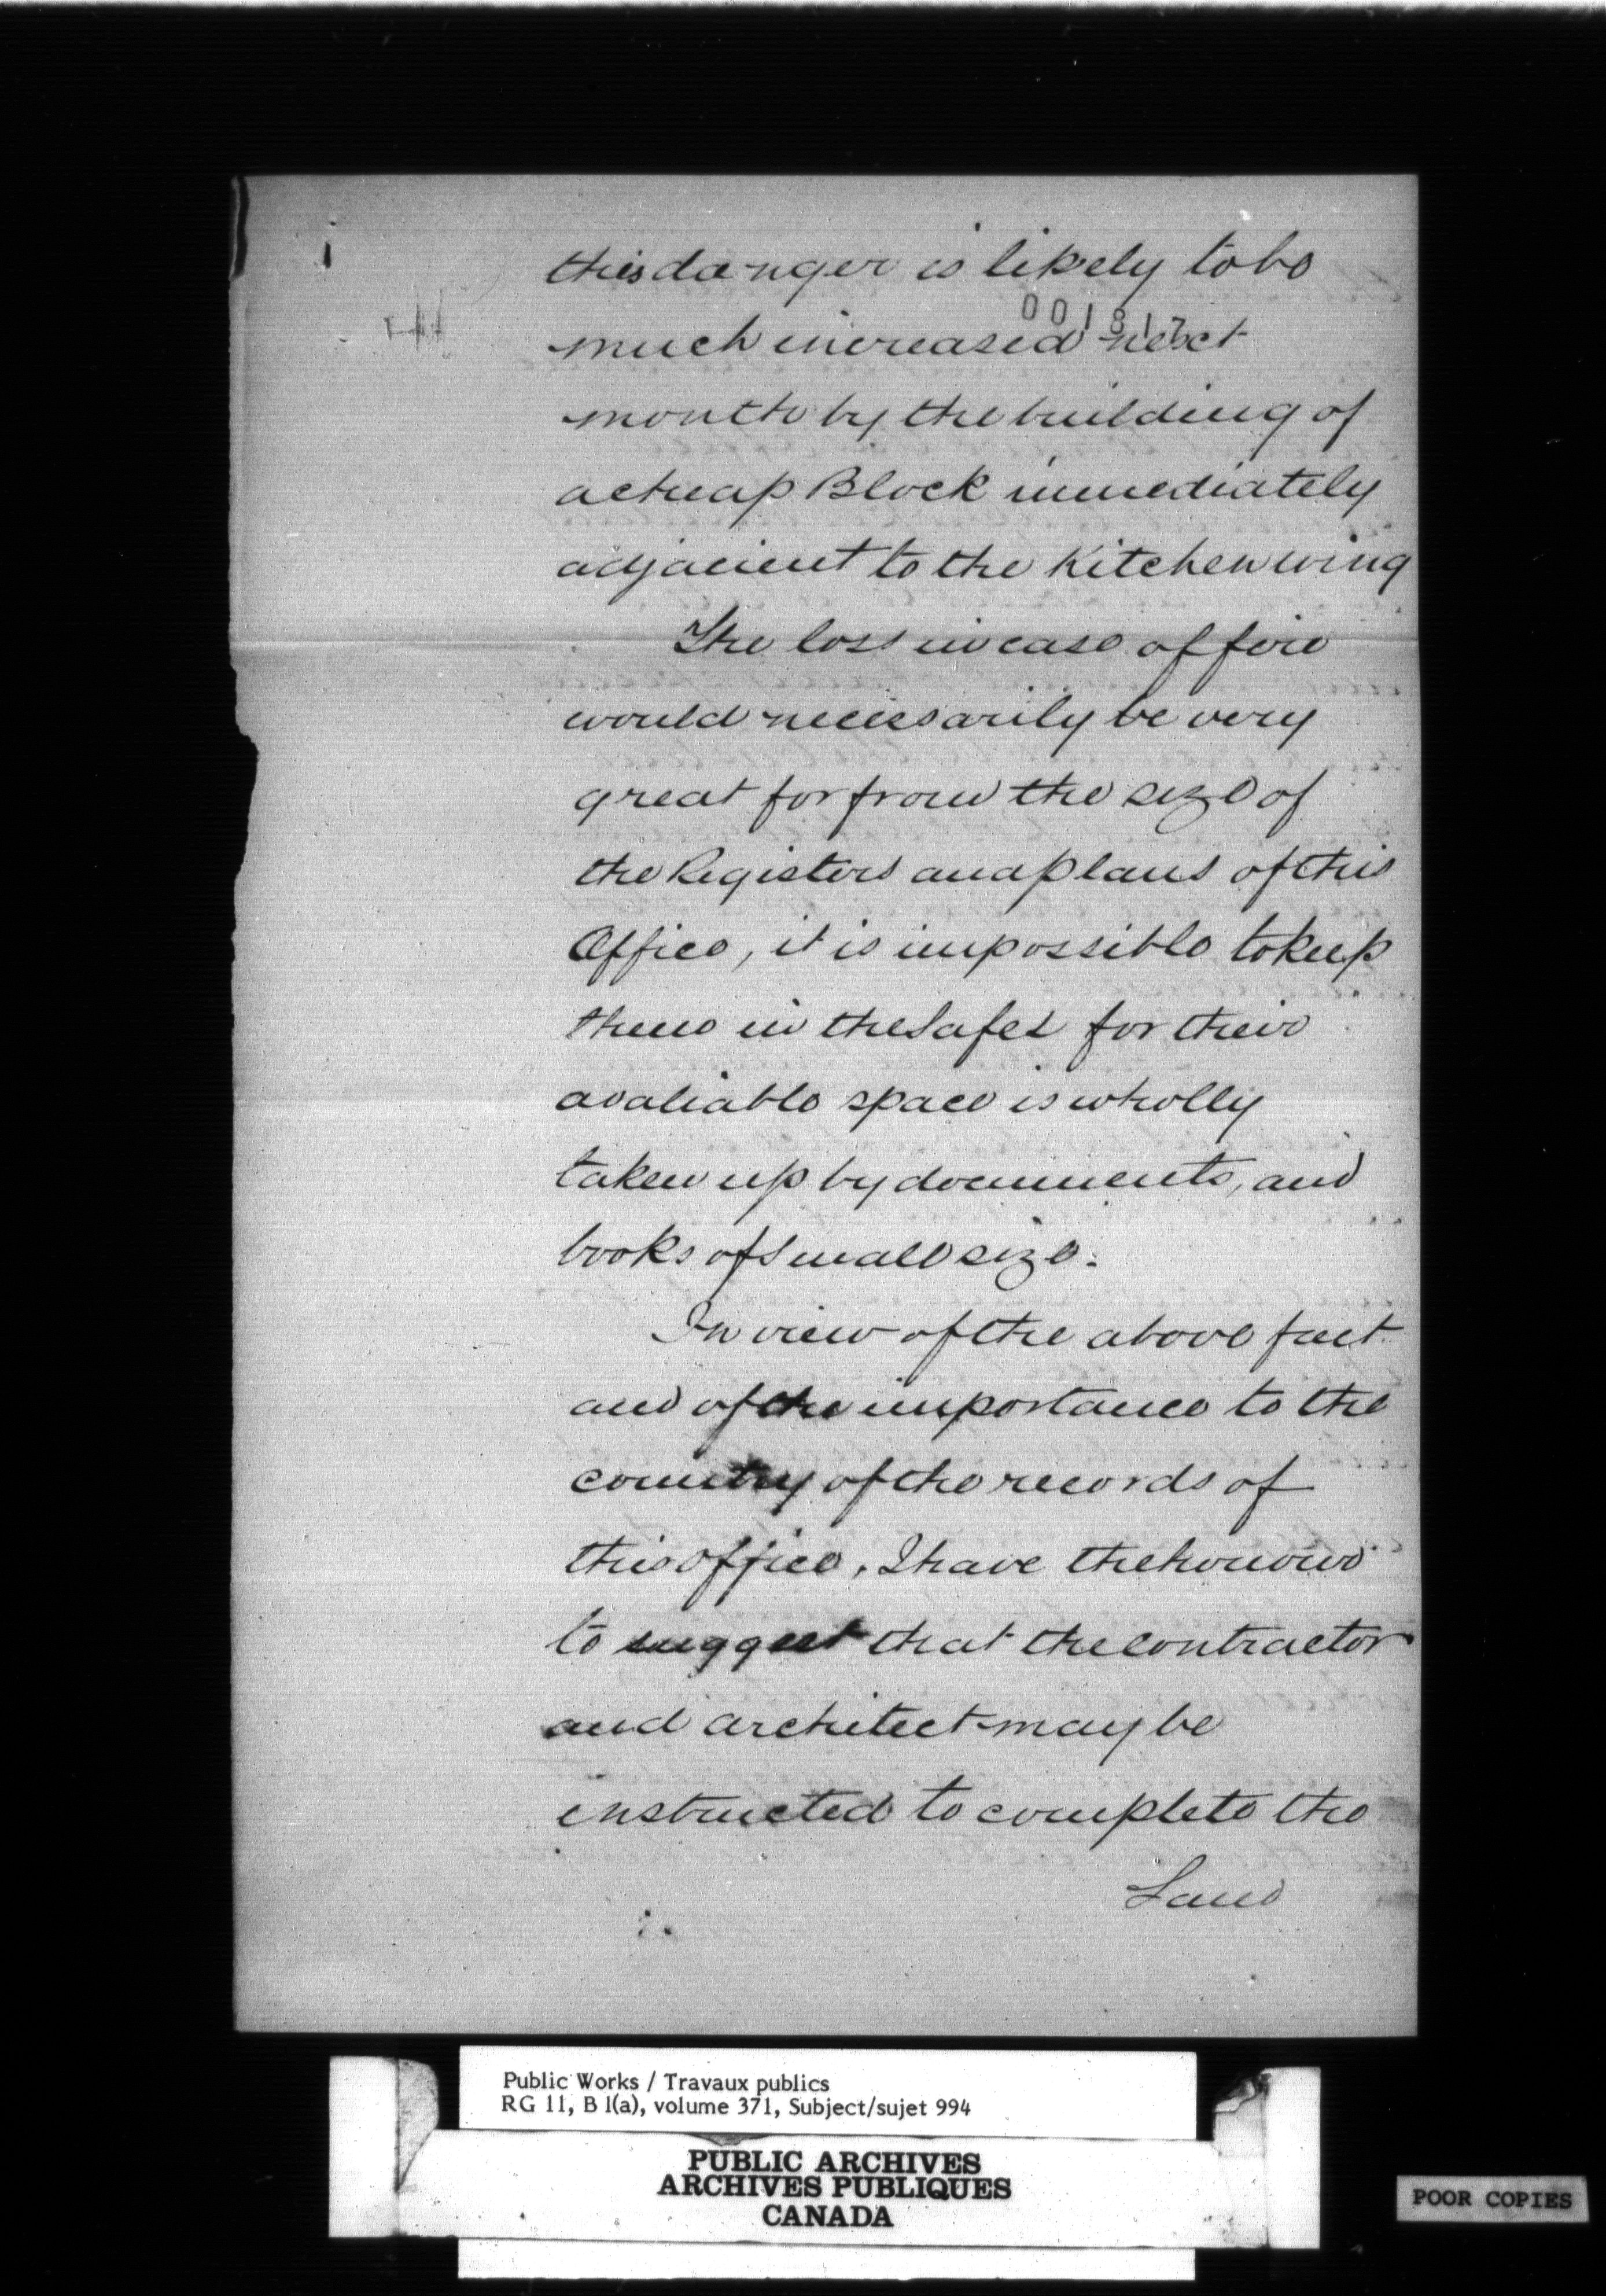 this danger is likely to be
001817
much increased next
month by the building of
a cheap Block immediately
adjacient to the Kitchen wing
The loss in case of fire
would necessarily be very
great for from the size of
the Registers and plans of this
Office, it is impossible to keep
them in the Safes for their
avaliable space is wholly
taken up by documents, and
books of small size.
In view of the above fact
and of the importance to the
country of the records of
this office, I have the honour
to suggest that the contractor
and architect may be
instructed to complete the
Land
Public Works / Travaux publics
RG 11, B 1(a), volume 371, Subject/sujet 994
PUBLIC ARCHIVES
ARCHIVES PUBLIQUES
CANADA
POOR COPIES